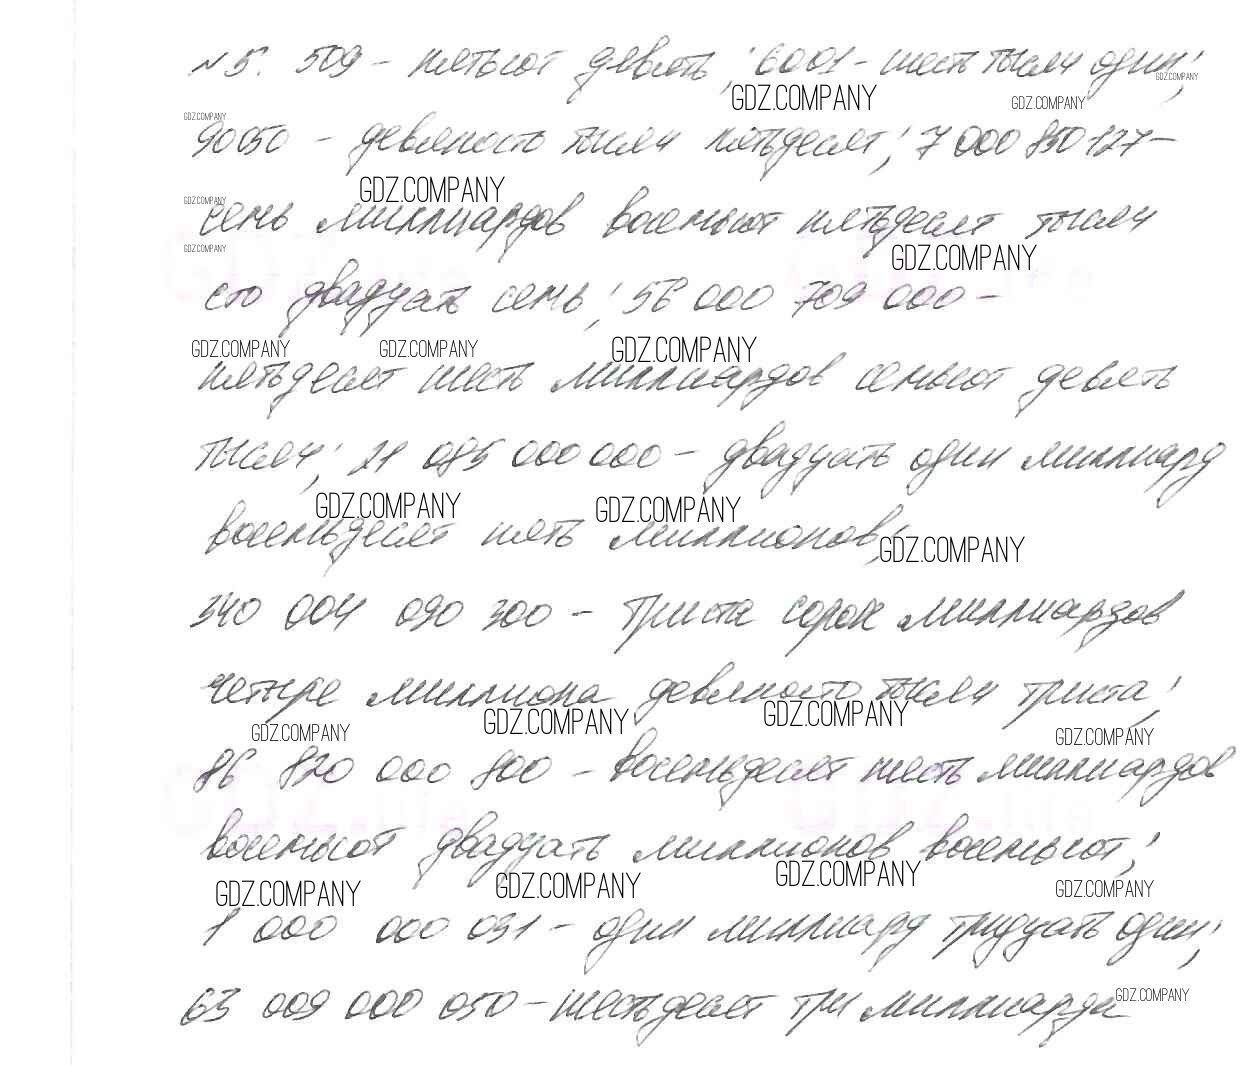 №5. 509 - пятьсот девять; 6001 - шесть тысяч один;
GDZ.COMPANY GDZ.COMPANY GDZ.COMPANY
GDZ.COMPANY
90050 - девяносто тысяч пятьдесят; 7 000 850 127 -
GDZ.COMPANY
GDZ.COMPANY
семь миллиардов восемьсот пятьдесят тысяч
GDZ.COMPANY GDZ.COMPANY
сто двадцать семь; 56 000 709 000 -
GDZ.COMPANY GDZ.COMPANY GDZ.COMPANY
пятьдесят шесть миллиардов семьсот девять
тысяч; 21 085 000 000 - двадцать один миллиард
GDZ.COMPANY GDZ.COMPANY
восемьдесят пять миллионов;
GDZ.COMPANY
340 004 090 300 - триста сорок миллиардов
четыре миллиона девяносто тысяч триста;
GDZ.COMPANY GDZ.COMPANY GDZ.COMPANY GDZ.COMPANY
86 820 000 800 - восемьдесят шесть миллиардов
восемьсот двадцать миллионов восемьсот;
GDZ.COMPANY GDZ.COMPANY GDZ.COMPANY GDZ.COMPANY
1 000 000 031 - один миллиард тридцать один;
63 009 000 050 - шестьдесят три миллиарда
GDZ.COMPANY